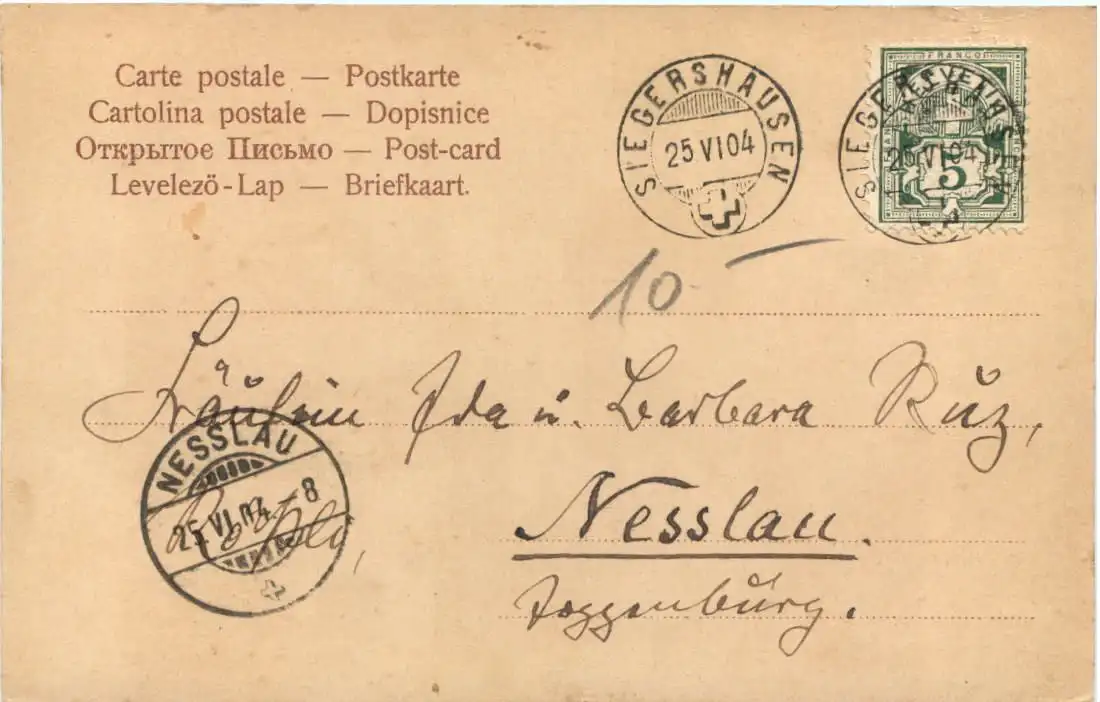 Carte postale — Postkarte
Cartolina postale — Dopisnice
Открытое Письмо — Post-card
Levelező-Lap — Briefkaart.
SIEGERSHAUSEN
25 VI 04
FRANCO
HELVETIA
5
SIEGERSHAUSEN
25 VI 04
10
Fräulein Ida u. Barbara Ruz,
NESSLAU
25. VI. 04. – 8
Nesslau.
Toggenburg.